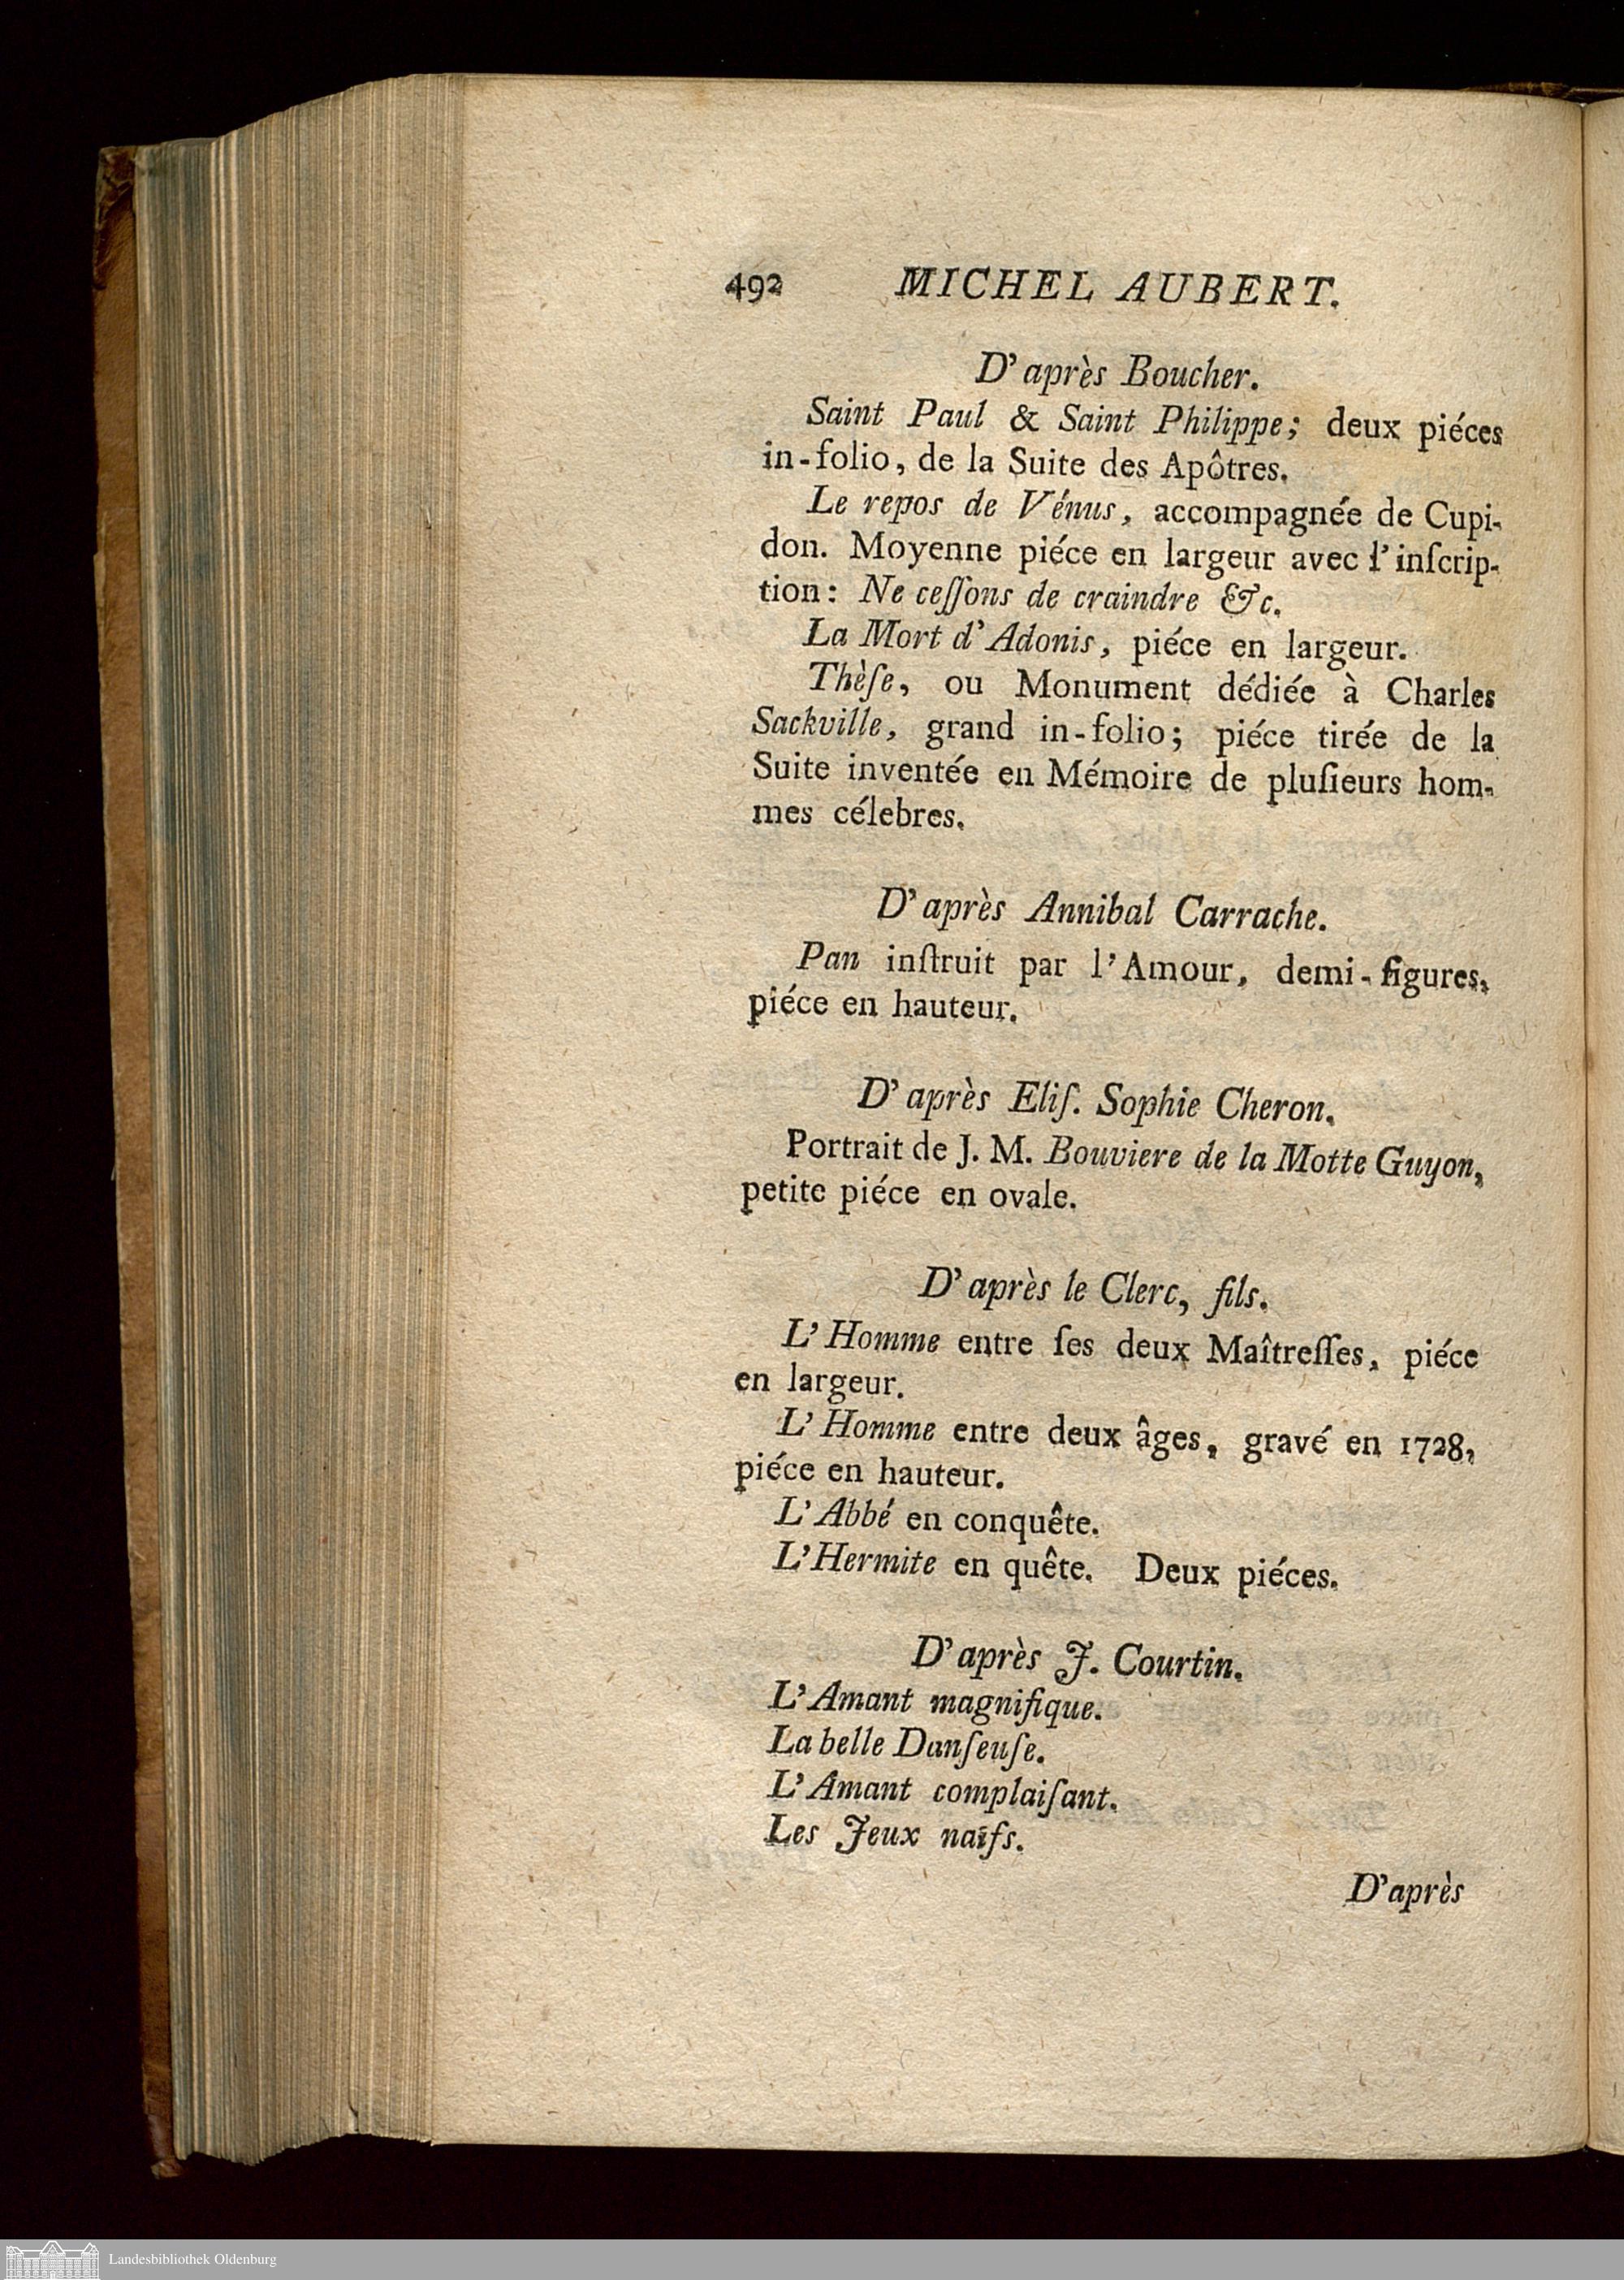 492 MICHEL AUBERT.
D'après Boucher.
Saint Paul & Saint Philippe; deux piéces
in-folio, de la Suite des Apôtres.
Le repos de Vénus, accompagnée de Cupi-
don. Moyenne piéce en largeur avec l'inſcrip-
tion: Ne ceſſons de craindre &c.
La Mort d'Adonis, piéce en largeur.
Thèſe, ou Monument dédiée à Charles
Sackville, grand in-folio; piéce tirée de la
Suite inventée en Mémoire de pluſieurs hom-
mes célebres.
D'après Annibal Carrache.
Pan inſtruit par l'Amour, demi-figures,
piéce en hauteur.
D'après Eliſ. Sophie Cheron.
Portrait de J. M. Bouviere de la Motte Guyon,
petite piéce en ovale.
D'après le Clerc, fils.
L'Homme entre ſes deux Maîtreſſes, piéce
en largeur.
L'Homme entre deux âges, gravé en 1728,
piéce en hauteur.
L'Abbé en conquête.
L'Hermite en quête. Deux piéces.
D'après J. Courtin.
L'Amant magnifique.
La belle Danſeuſe.
L'Amant complaiſant.
Les Jeux naïfs.
D'après
Landesbibliothek Oldenburg